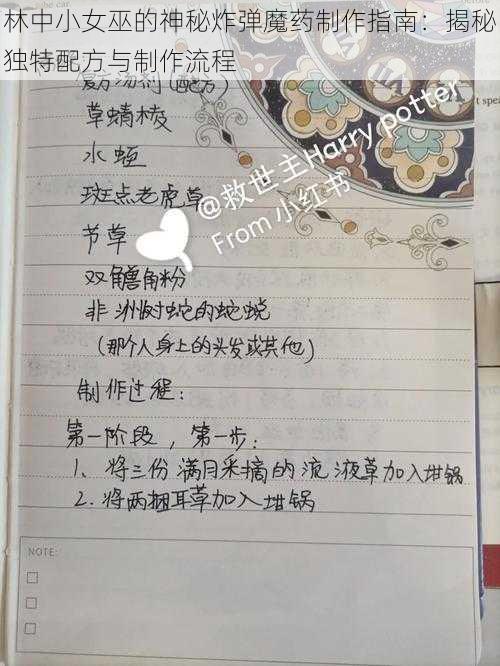 林中小女巫的神秘炸弹魔药制作指南：揭秘
独特配方与制作流程
复方汤剂(配方)
草蜻蛉
水蛭
斑点老虎草
节草
双角兽角粉
非洲树蛇的蛇蜕
(那个人身上的头发或其他)
制作过程:
第一阶段，第一步:
1、将三份满月采摘的流液草加入坩锅
2.将两捆耳草加入坩锅
NOTE:
@救世主Harry potter
From 小红书
t spea